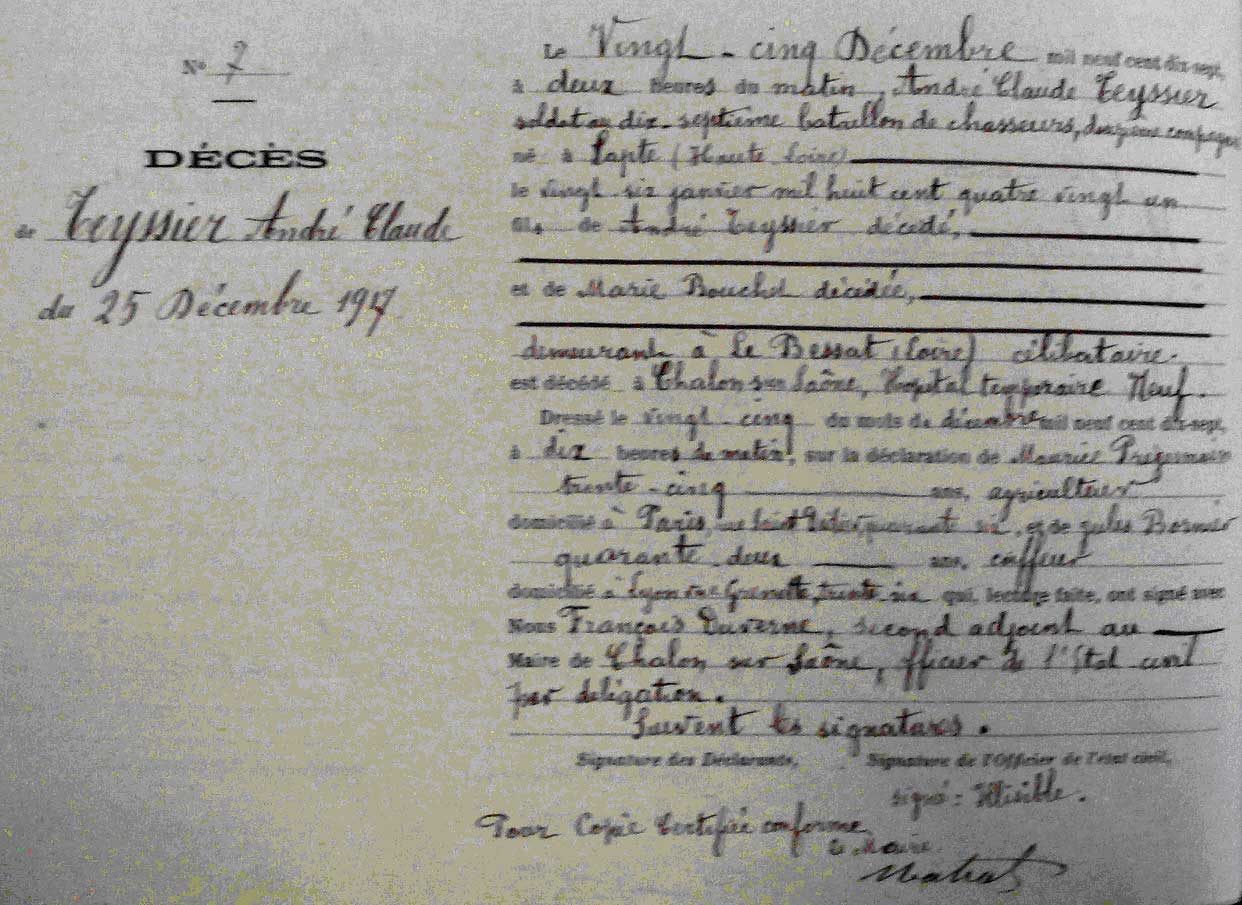 N° 7
DÉCÈS
de Teyssier André Claude
du 25 Décembre 1917.
Le Vingt-cinq Décembre mil neuf cent dix-sept,
à deux heures du matin, André Claude Teyssier
soldat au dix-septième bataillon de chasseurs, deuxième compagnie
né à Lapte (Haute Loire)
le vingt six janvier mil huit cent quatre vingt un
fils de André Teyssier décédé,
et de Marie Bouchet décédée,
demeurant à Le Bessat (Loire) célibataire.
est décédé à Chalon sur Saône, Hôpital temporaire Neuf.
Dressé le vingt-cinq du mois de décembre mil neuf cent dix-sept,
à dix heures du matin, sur la déclaration de Maurice
trente-cinq ans, agriculteur
domicilié à Paris, rue Saint quarant six, et de jules
quarante deux ans, coiffeur
domicilié à Lyon rue Grenette, trente-six qui, lecture faite, ont signé avec
Nous François Duverne, second adjoint au
Maire de Chalon sur Saône, officier de l'Etat civil
par délégation.
Suivent les signatures.
Signature des Déclarants, Signature de l'Officier de l'état civil,
signé: Illisible.
Pour Copie Certifiée conforme,
le Maire.